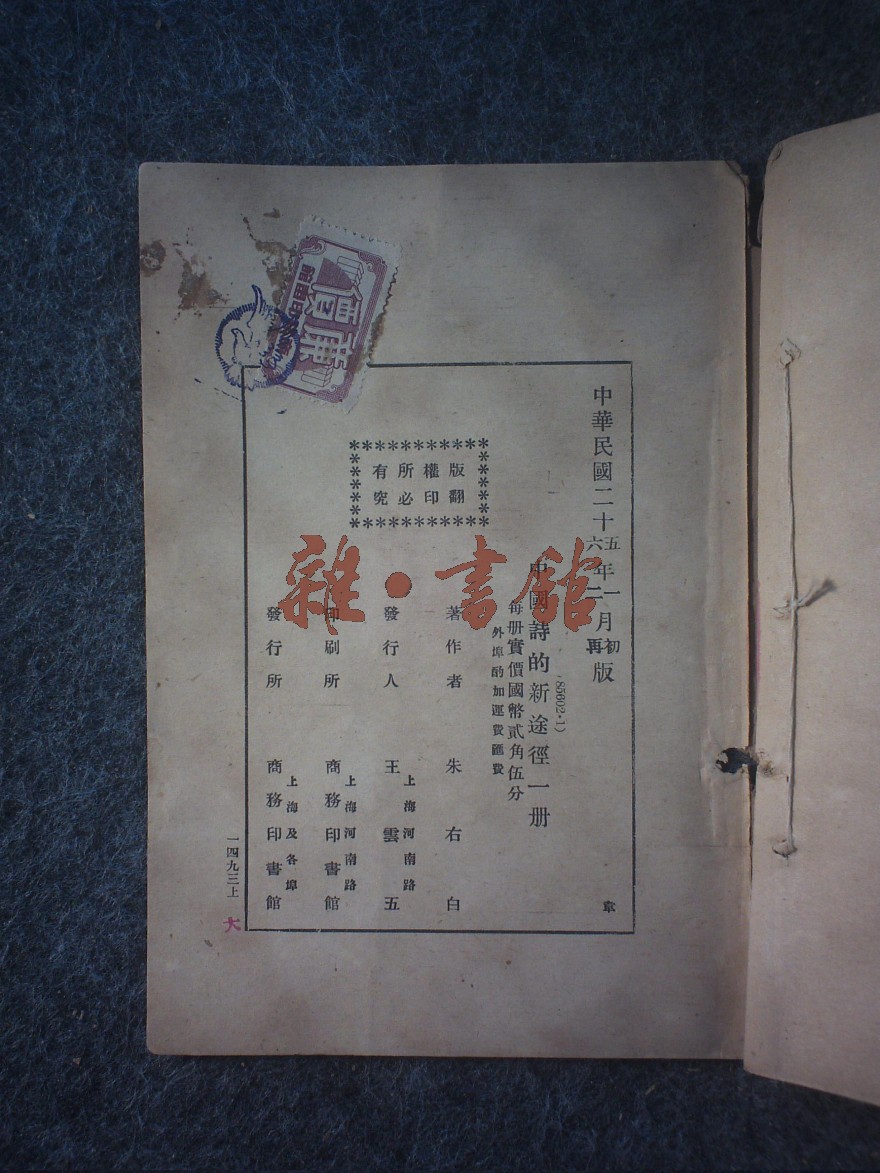 中華民國二十五年一月初版
六二再
(85602·1)
中國詩的新途徑一册
每册實價國幣貳角伍分
外埠酌加運費匯費
版權所有
翻印必究
著作者 朱右白
上海河南路
發行人 王雲五
上海河南路
印刷所 商務印書館
上海及各埠
發行所 商務印書館
一四九三上
大
章
雜·書館